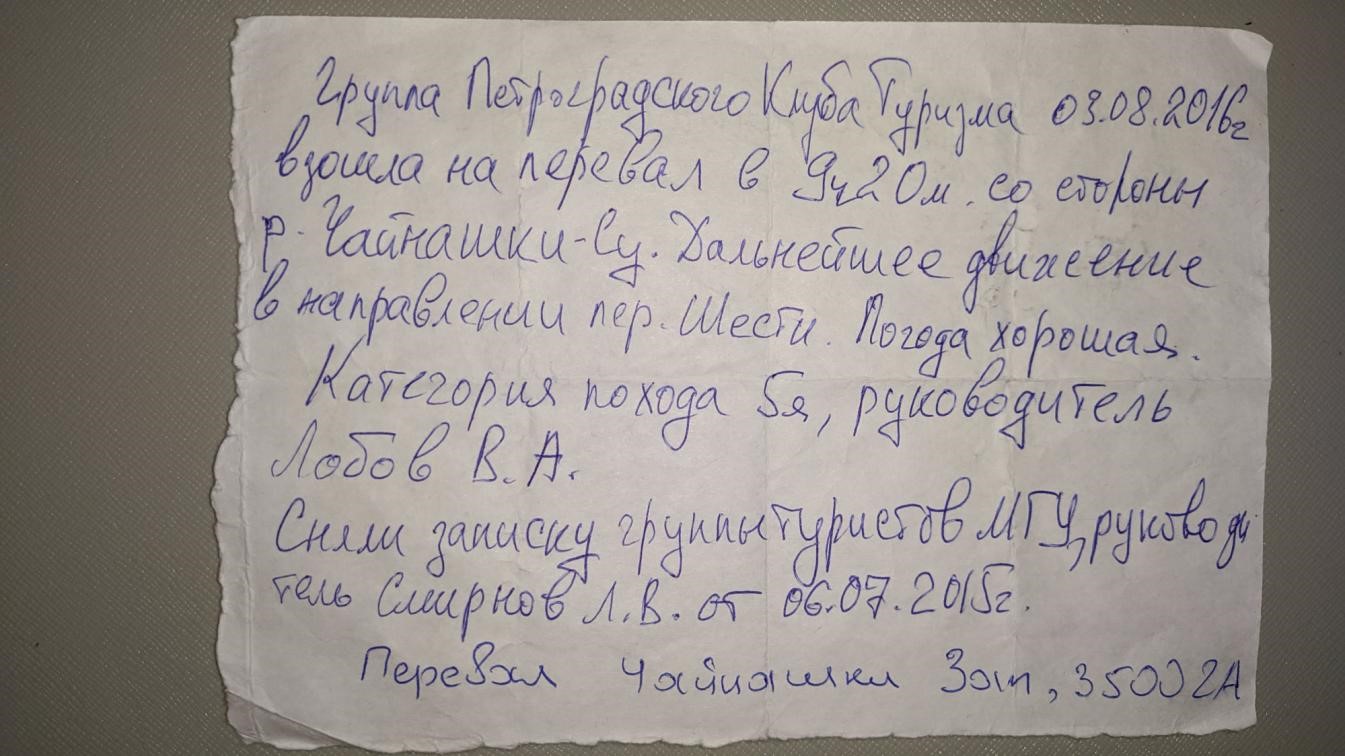 Группа Петроградского Клуба Туризма 03.08.2016г
взошла на перевал в 9ч20м. со стороны
р. Чайнашки-Су. Дальнейшее движение
в направлении пер. Шести. Погода хорошая.
Категория похода 5я, руководитель
Лобов В.А.
Сняли записку группы туристов МГУ, руководи
тель Смирнов Л.В. от 06.07.2015г.
Перевал Чайнашки Зап, 3500 2А